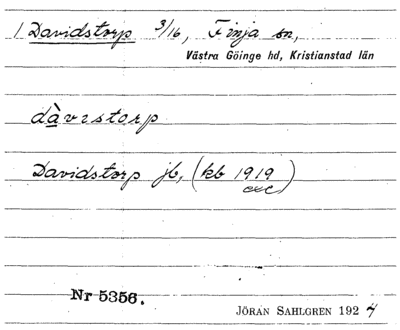 1 Davidstorp 3/16, Finja sn,
Västra Göinge hd, Kristianstad län
dàvistorp
Davidstorp jb, (kb 1919)
etc
Nr 5356.
JÖRAN SAHLGREN 1924